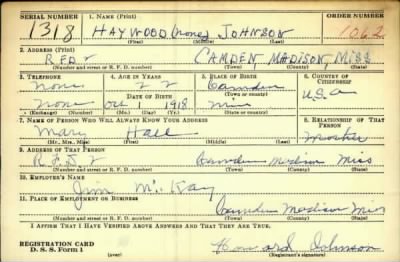 SERIAL NUMBER 1. NAME (Print) ORDER NUMBER
1318 HAYWOOD (none) JOHNSON 1062
(First) (Middle) (Last)
2. ADDRESS (Print)
R.F.D. 2 CAMDEN, MADISON, MISS
(Number and street or R. F. D. number) (Town) (County) (State)
3. TELEPHONE 4. AGE IN YEARS 5. PLACE OF BIRTH 6. COUNTRY OF CITIZENSHIP
none 22 Camden
DATE OF BIRTH (Town or county)
none Oct 1 1918 Miss U.S.A
(Exchange) (Number) (Mo.) (Day) (Yr.) (State or country)
7. NAME OF PERSON WHO WILL ALWAYS KNOW YOUR ADDRESS 8. RELATIONSHIP OF THAT PERSON
Mary Hall Mother
(Mr., Mrs., Miss) (First) (Middle) (Last)
9. ADDRESS OF THAT PERSON
R.F.D. 2 Camden Madison Miss
(Number and street or R. F. D. number) (Town) (County) (State)
10. EMPLOYER'S NAME
Jim McKay
11. PLACE OF EMPLOYMENT OR BUSINESS
Camden Madison Miss
(Number and street or R. F. D. number) (Town) (County) (State)
I AFFIRM THAT I HAVE VERIFIED ABOVE ANSWERS AND THAT THEY ARE TRUE.
REGISTRATION CARD
D. S. S. Form 1 (over) Howard Johnson
(Registrant's signature)